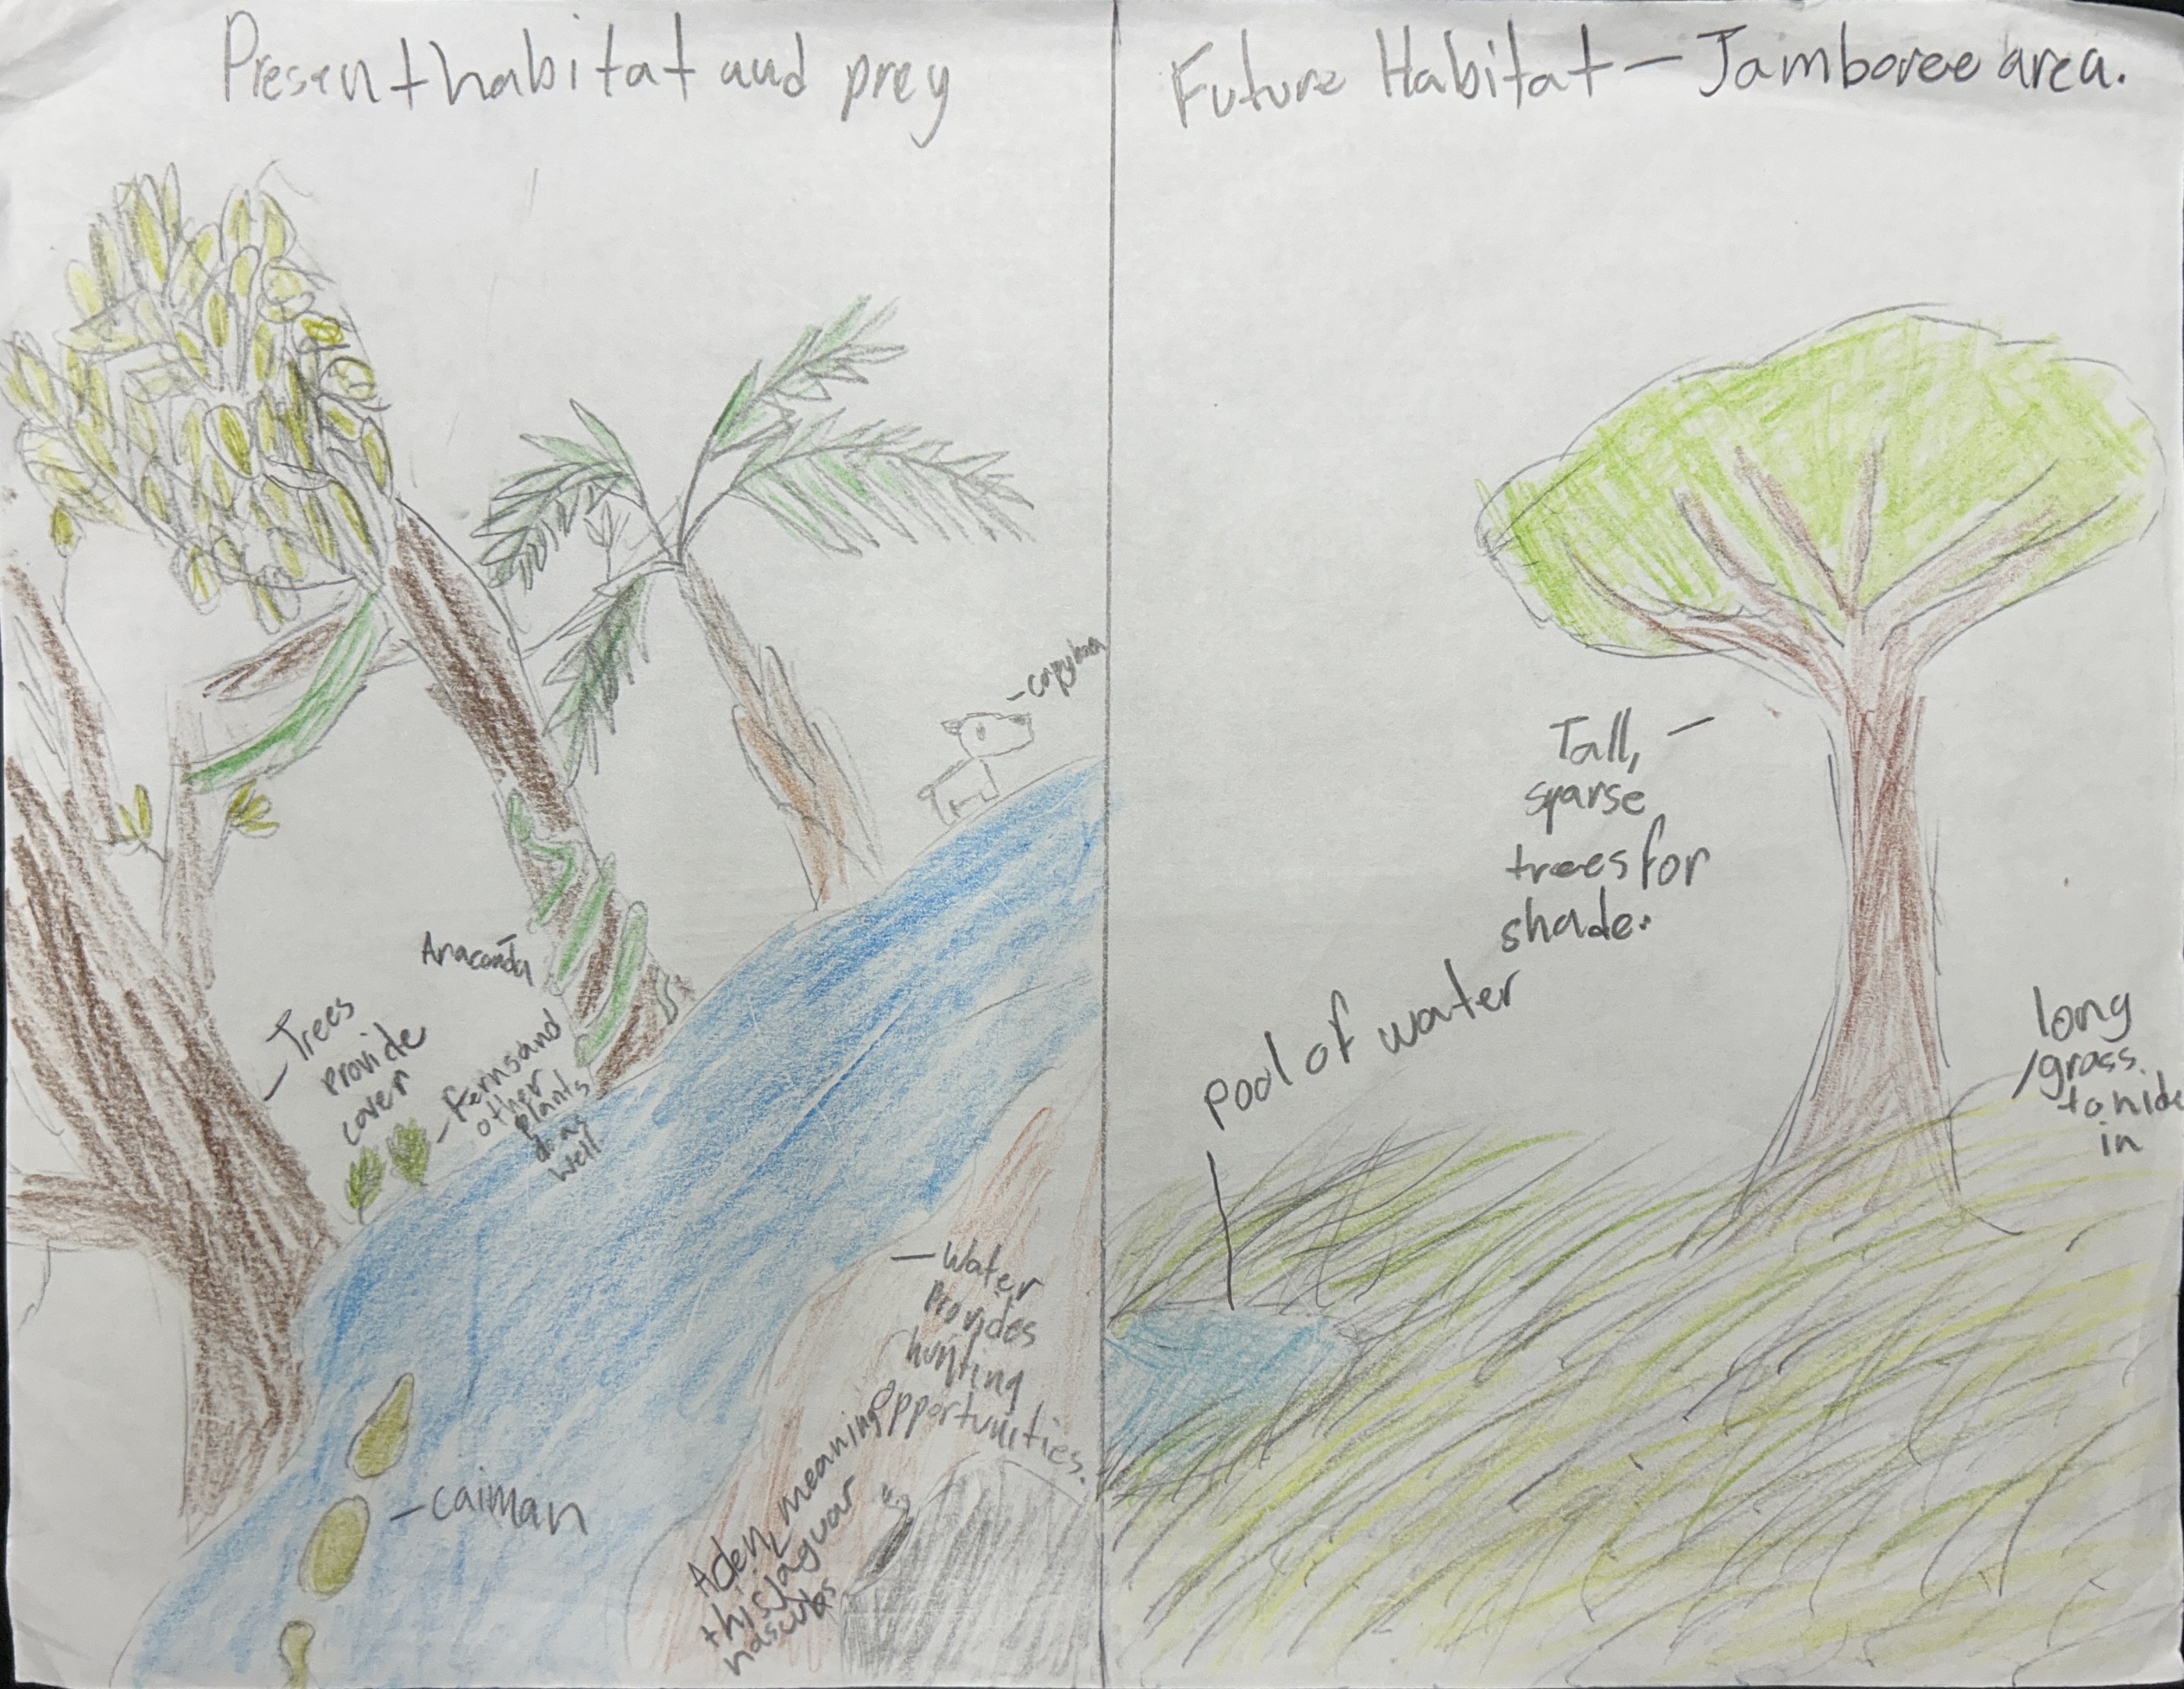 Present habitat and prey
Future Habitat — Jamboree area.
- capybara
Anaconda
- Trees
provide
cover
- Ferns and
other
plants
do as
well
- Water
provides
hunting
opportunities.
- caiman
A den, meaning
this jaguar
has cubs
Tall,
sparse
trees for
shade.
pool of water
long
grass
to hide
in